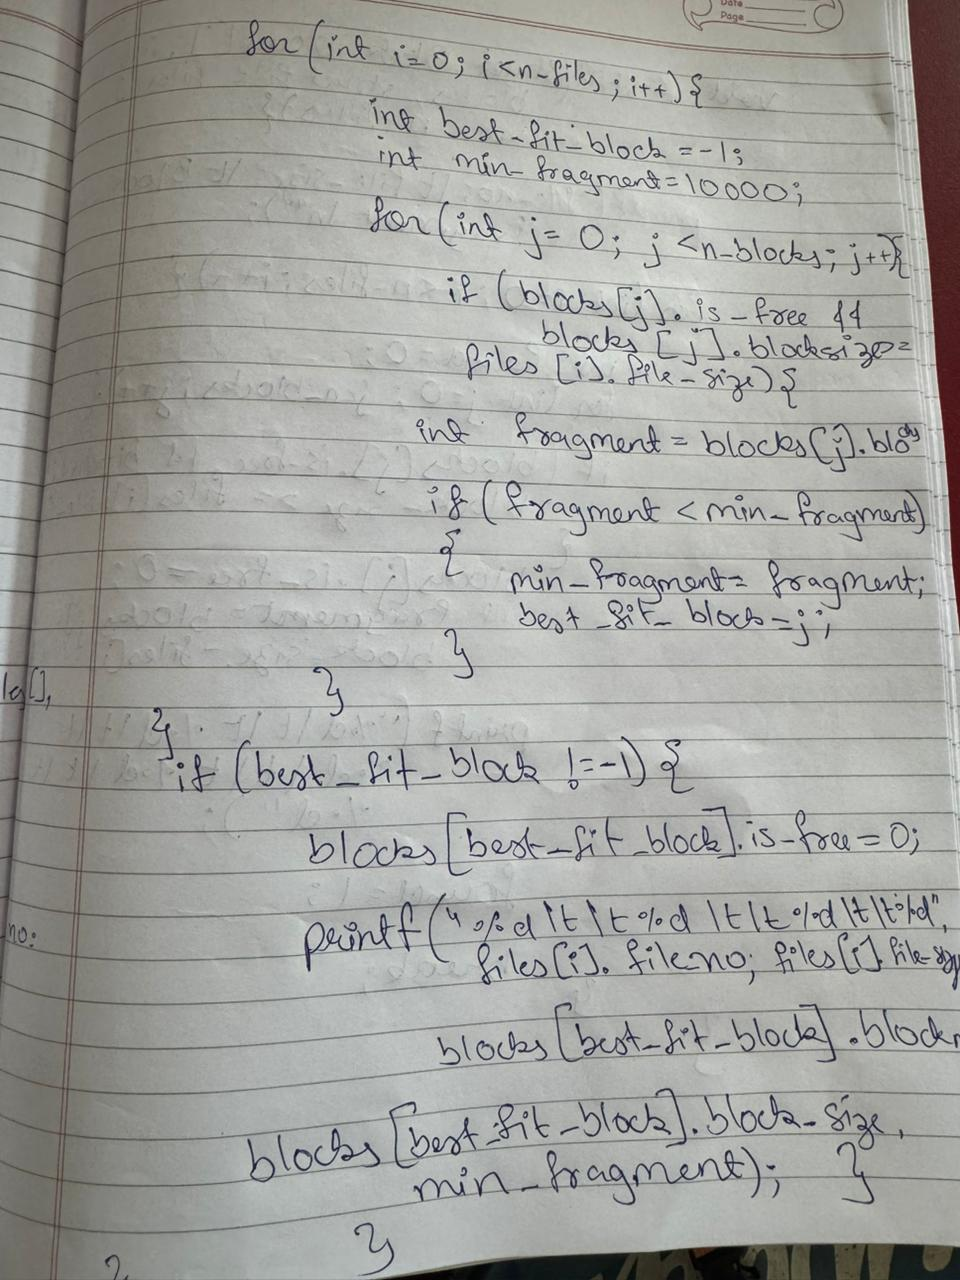 Date
Page
for (int i=0; i<n-files; i++){
int best-fit-block =-1;
int min-fragment=10000;
for (int j= 0; j <n-blocks; j++){
if (blocks[j]. is-free &&
blocks [j].blocksize>=
files [i]. file-size){
int fragment = blocks[j].blo
if (fragment <min-fragment)
{
min-fragment= fragment;
best_fit_ block=j;
}
}
lg[],
}
if (best_fit_block !=-1) {
blocks[best_fit_block].is-free=0;
no:
printf("%d \t \t %d \t\t %d\t\t%d",
files[i]. file-no; files[i].file-size
blocks [best-fit-block] .block
blocks [best-fit-block].block-size,
min_fragment); }
}
}